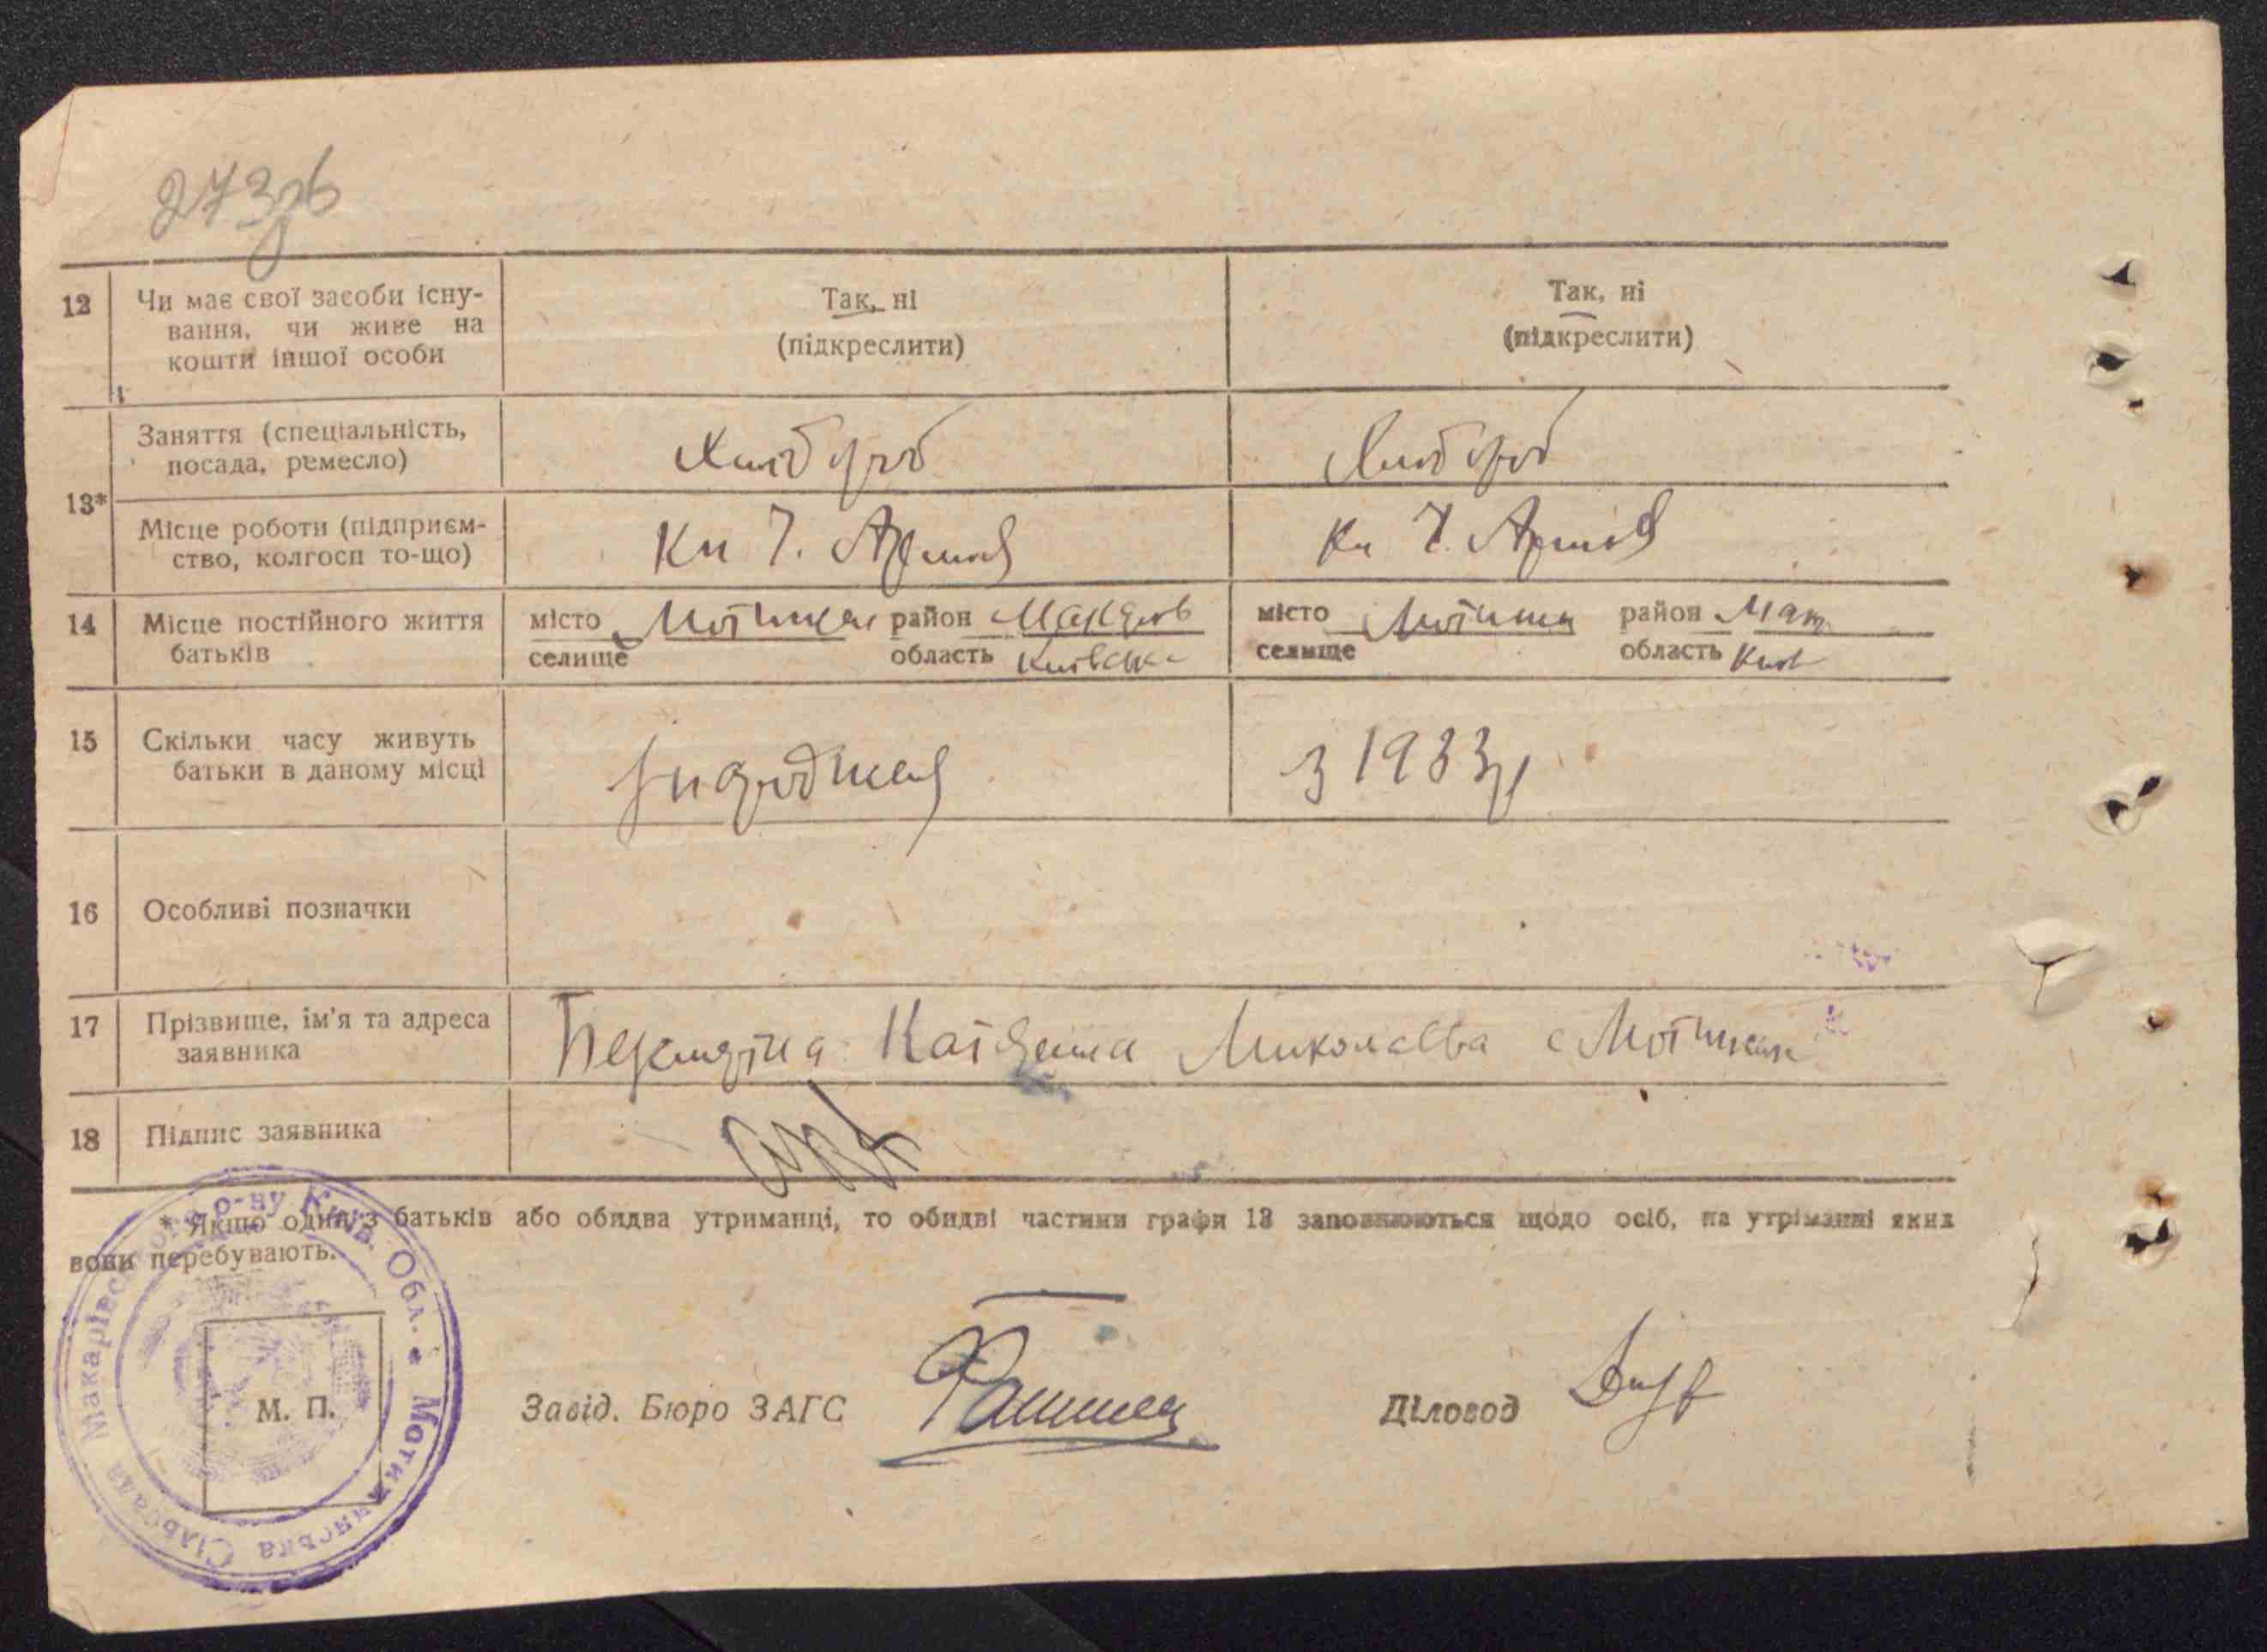 273зв
12 Чи має свої засоби існу- Так, ні Так, ні
вання, чи живе на (підкреслити) (підкреслити)
кошти іншої особи
Заняття (спеціальність, Хлібороб Хлібороб
посада, ремесло)
13*
Місце роботи (підприєм- Ч. Армія Ч. Армія
ство, колгосп то-що)
14 Місце постійного життя місто Мотижин район Макарів місто Мотижин район Мак.
батьків селище область Київська селище область Київ
15 Скільки часу живуть з 1933р
батьки в даному місці
16 Особливі позначки
17 Прізвище, ім'я та адреса Катерина Миколаєва с Мотижин
заявника
18 Підпис заявника
* Якщо один з батьків або обидва утриманці, то обидві частини графи 13 заповнюються щодо осіб, на утріманні яких
вони перебувають.
Мотижинська Сільрада Макарівського р-ну Київ. Обл.
М. П.
Завід. Бюро ЗАГС Діловод